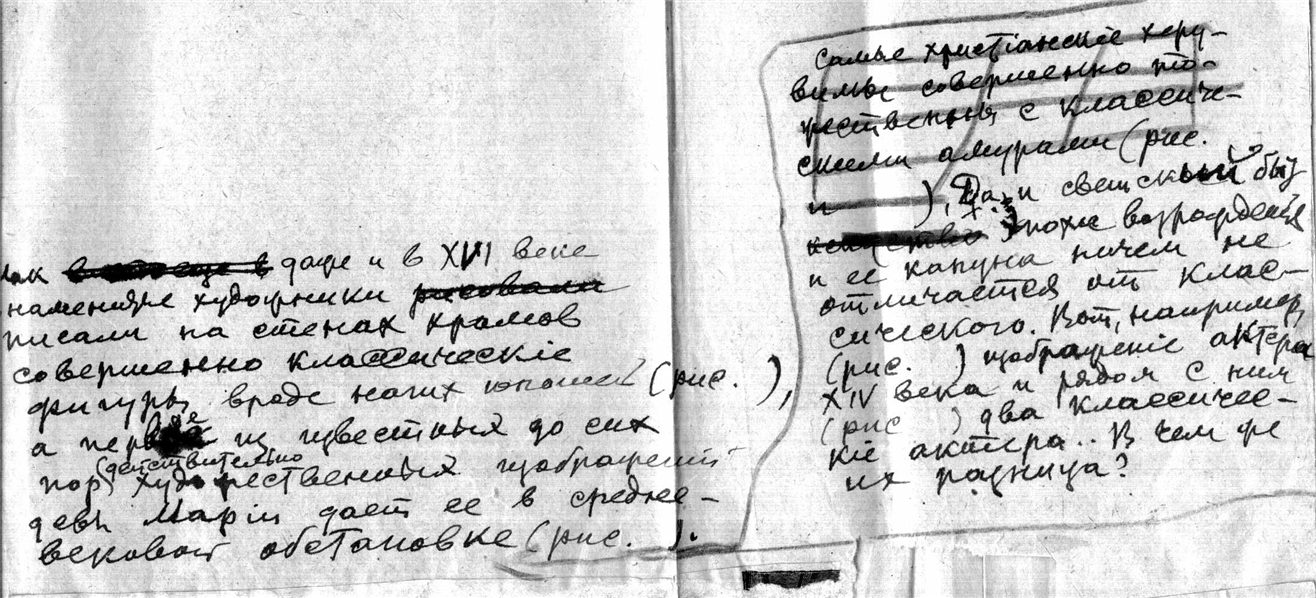 даже и в XIII веке
художники
писали на стенах храмов
совершенно классическіе
фигуры вроде нагих юношей (рис. ),
а первое из известных до сих
пор (действительно
художественных изображений
девы Маріи дает ее в средне-
вековой обстановке (рис. ).
Самые христіанскіе херу-
вимы совершенно то-
жественны с классиче-
скими амурами (рис.
и ), Да и светский быт
эпохи возрождения
и ее кануна ничем не
отличается от клас-
сического. Вот, например,
(рис. ) изображеніе актера
XIV века и рядом с ним
(рис ) два классичес-
кіе актера.. В чем же
их разница?